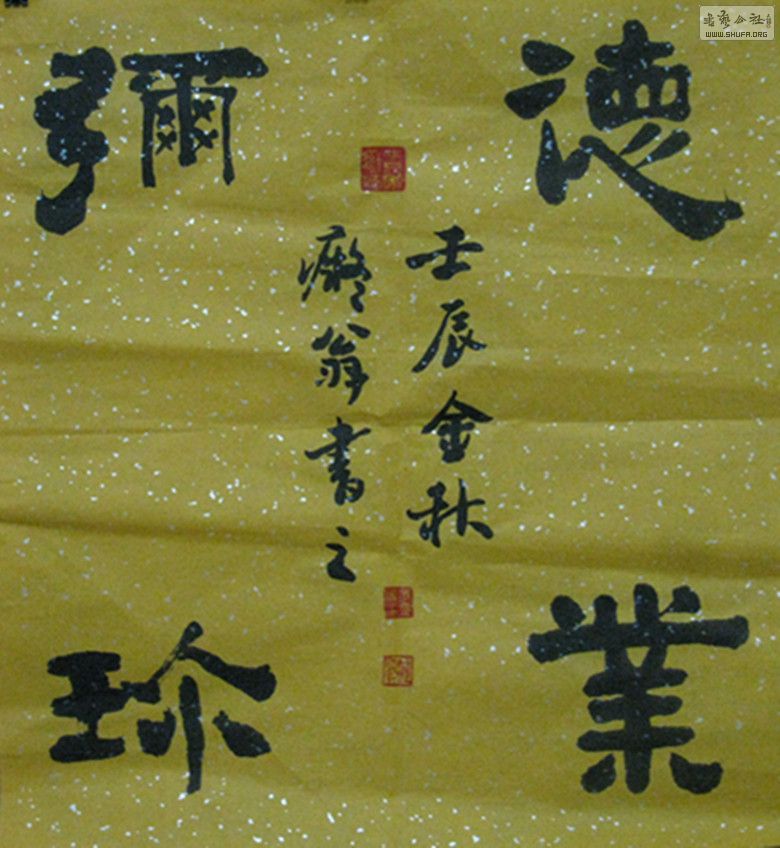 德業
彌珎
壬辰金秋
癡翁書之
書藝公社
WWW.SHUFA.ORG